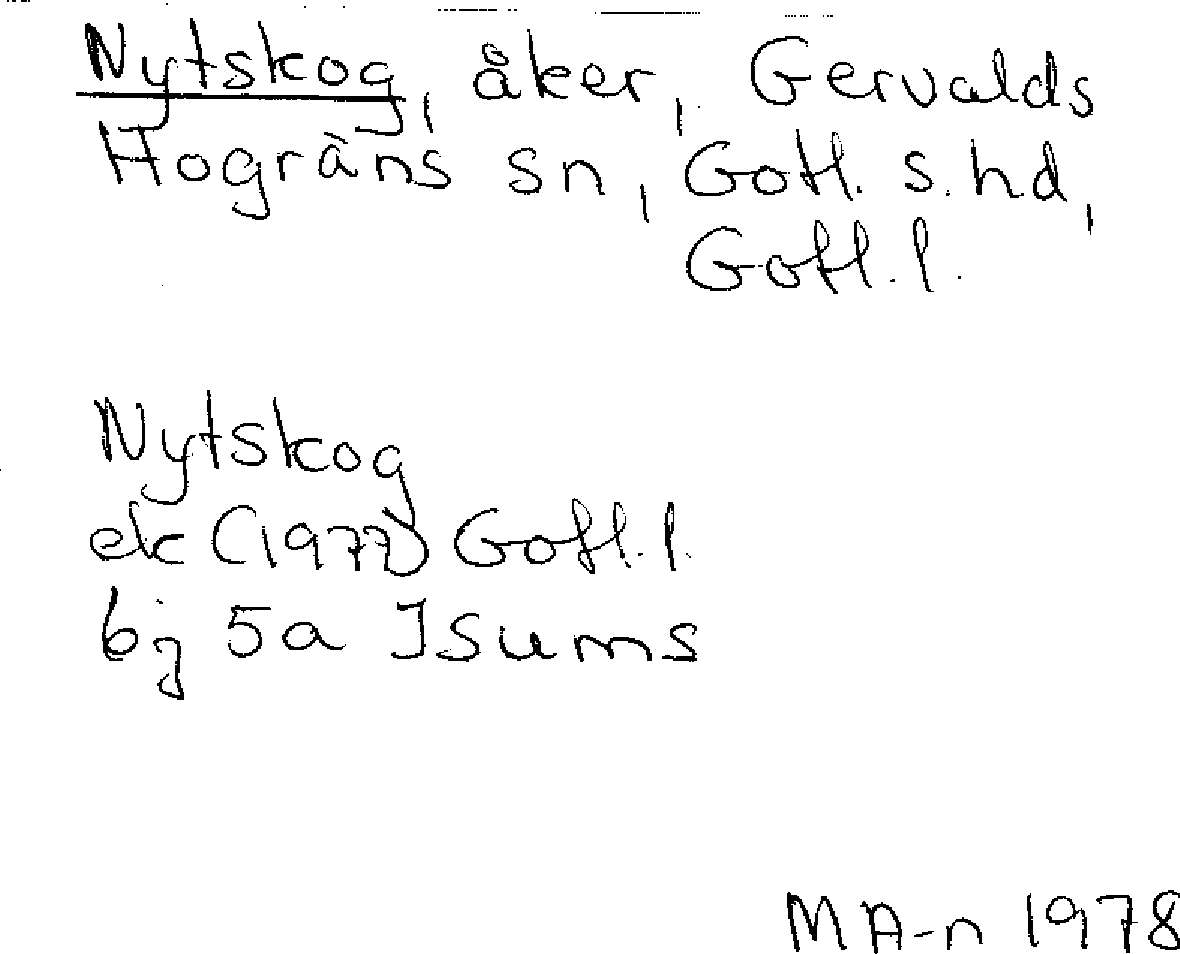 Nytskog, åker, Gervalds
Hogräns sn, Gotl. s. hd,
Gotl. l.
Nytskog
ek (1977) Gotl. l.
bj 5a Isums
MA-n 1978